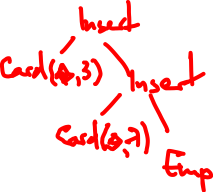 Insert
Card(♣,3) Insert
Card(♣,7)
Emp